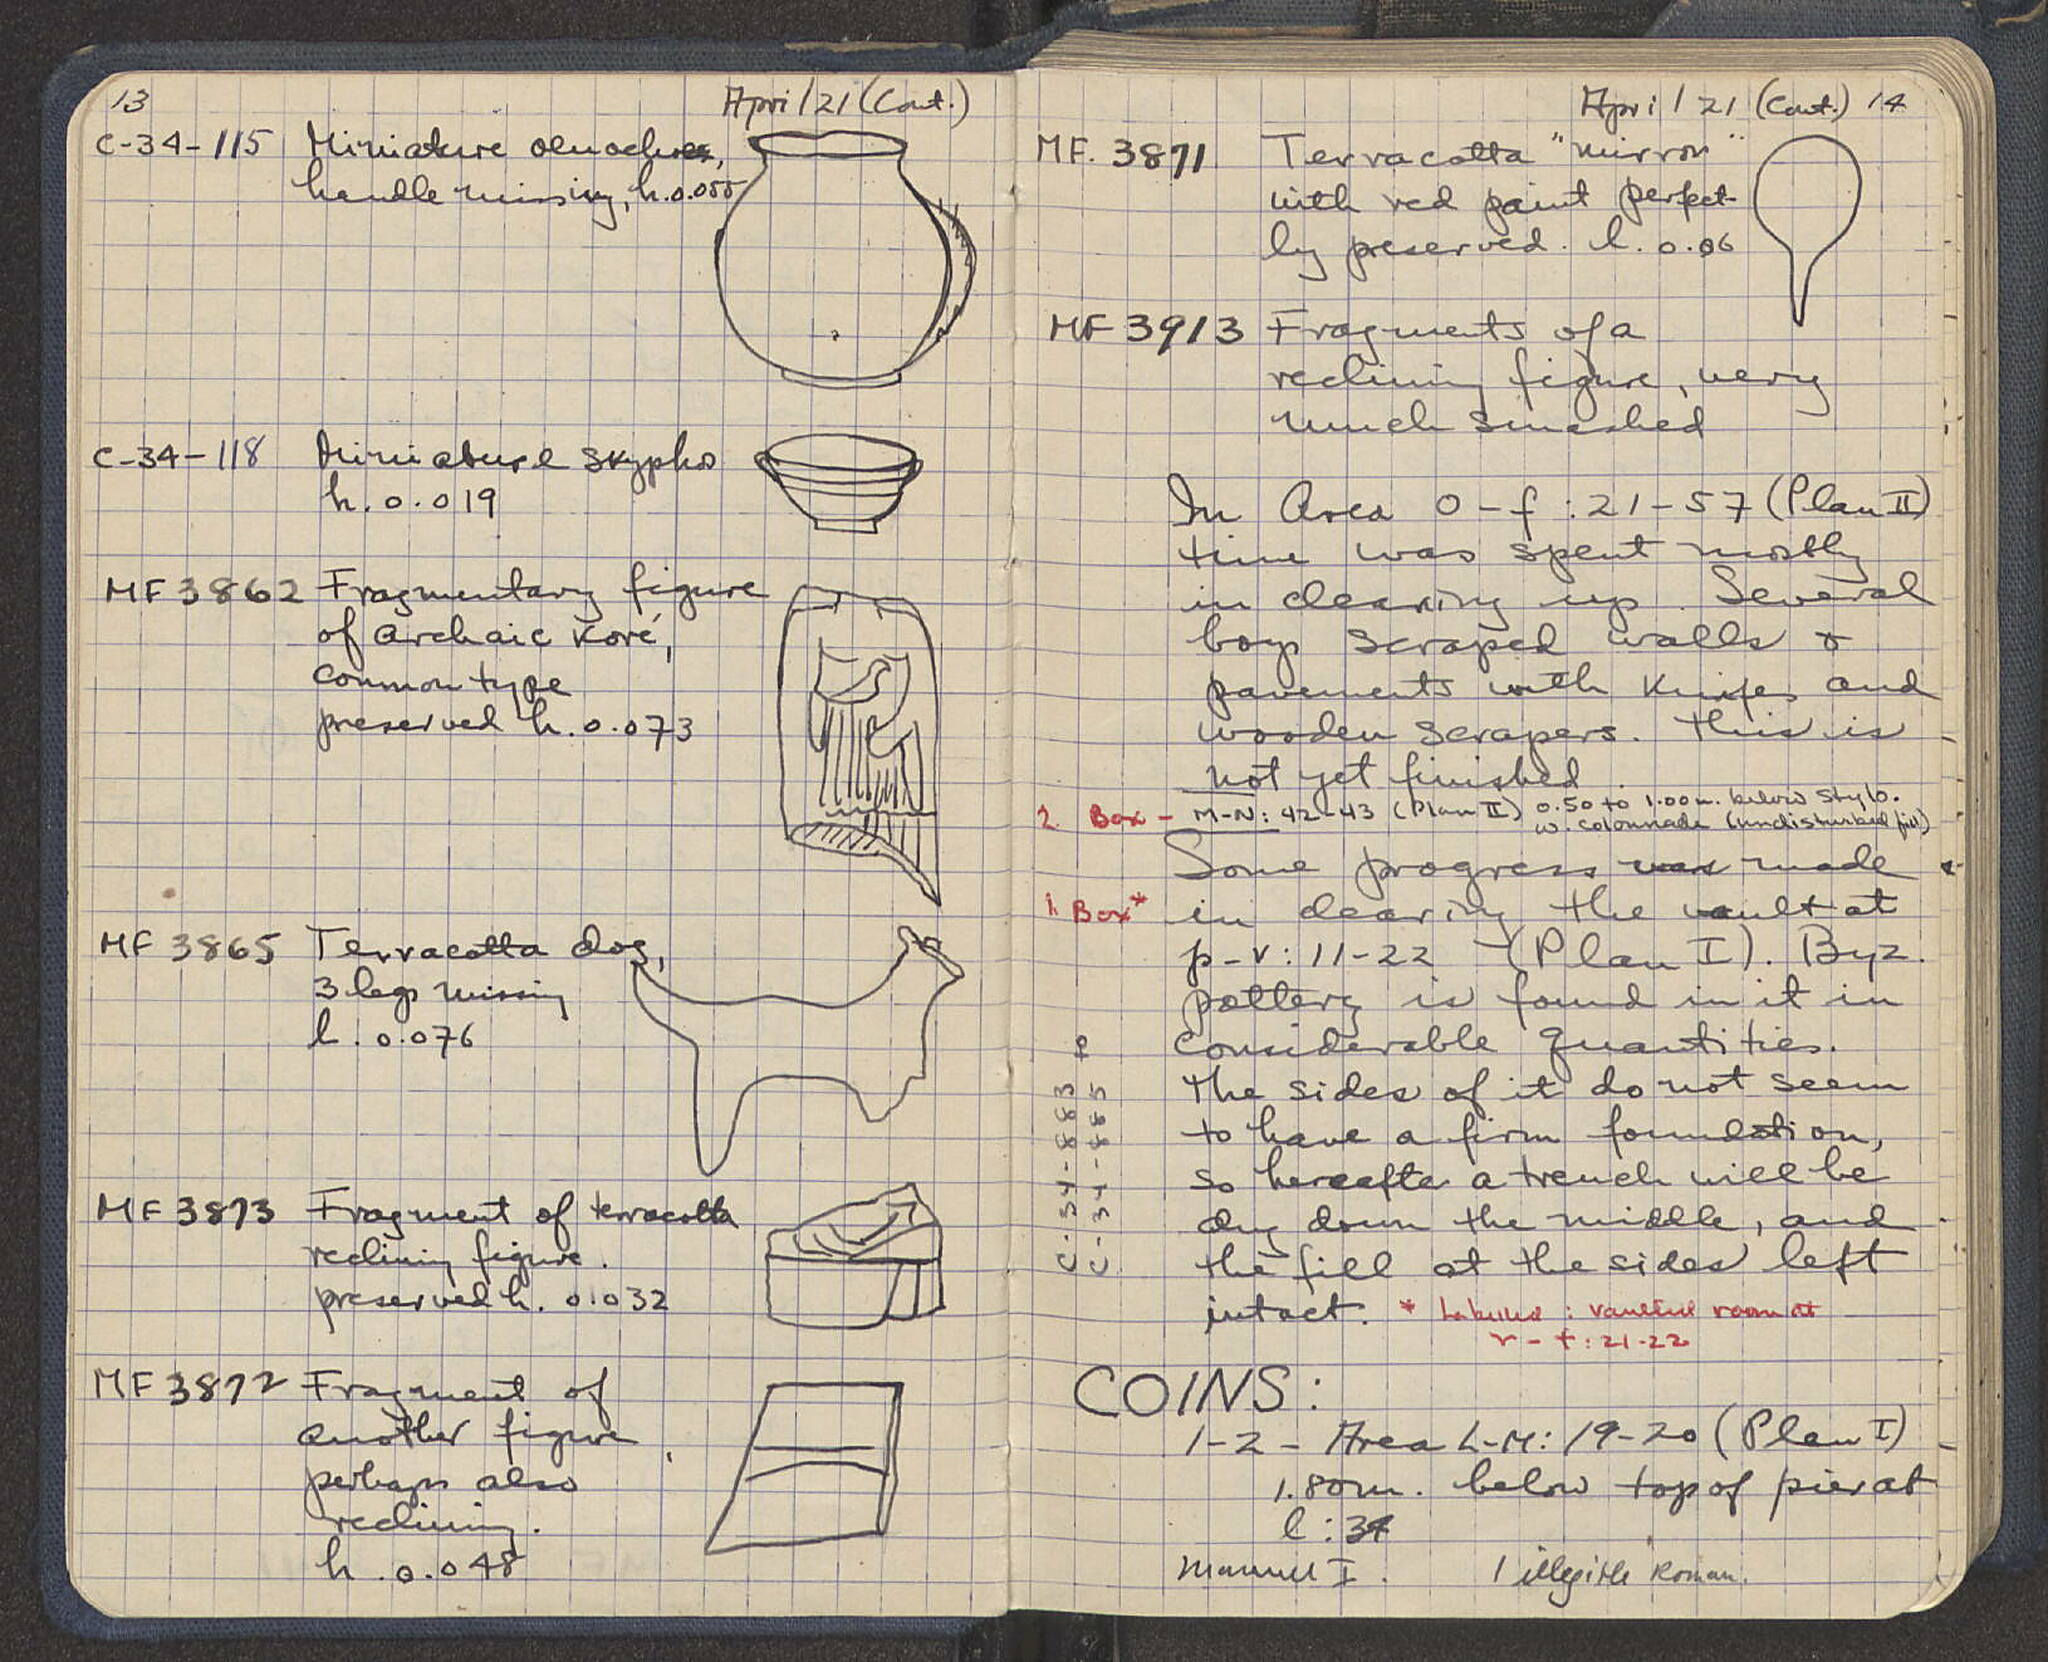 13 April 21 (Cont.)
C-34-115 Miniature oenochoe,
handle missing, h. 0.055
C-34-118 Miniature skyphos
h. 0.019
MF 3862 Fragmentary figure
of archaic Koré,
common type
preserved h. 0.073
MF 3865 Terracotta dog,
3 legs missing
l. 0.076
MF 3873 Fragment of terracotta
reclining figure.
preserved h. 0.032
MF 3872 Fragment of
another figure
perhaps also
reclining.
h. 0.048
April 21 (Cont.) 14
MF. 3871 Terracotta "mirror"
with red paint perfect-
ly preserved. l. 0.06
MF 3913 Fragments of a
reclining figure, very
much smashed
In Area O-f: 21-57 (Plan II)
time was spent mostly
in cleaning up. Several
boys scraped walls &
pavements with knifes and
wooden scrapers. This is
not yet finished.
2 Box - M-N: 42-43 (Plan II) 0.50 to 1.00m. below stylo.
w. colonnade (undisturbed fill)
Some progress was made
1. Box* in clearing the vault at
p-v: 11-22 (Plan I). Byz.
pottery is found in it in
considerable quantities.
The sides of it do not seem
to have a firm foundation,
so hereafter a trench will be
dug down the middle, and
the fill at the sides left
intact. * Labelled: vaulted room at
r-t: 21-22
C-34-883 P
C-34-885
COINS:
1-2 - Area L-M: 19-20 (Plan I)
1.80m. below top of pier at
l: 34
Manuel I. 1 illegible Roman.